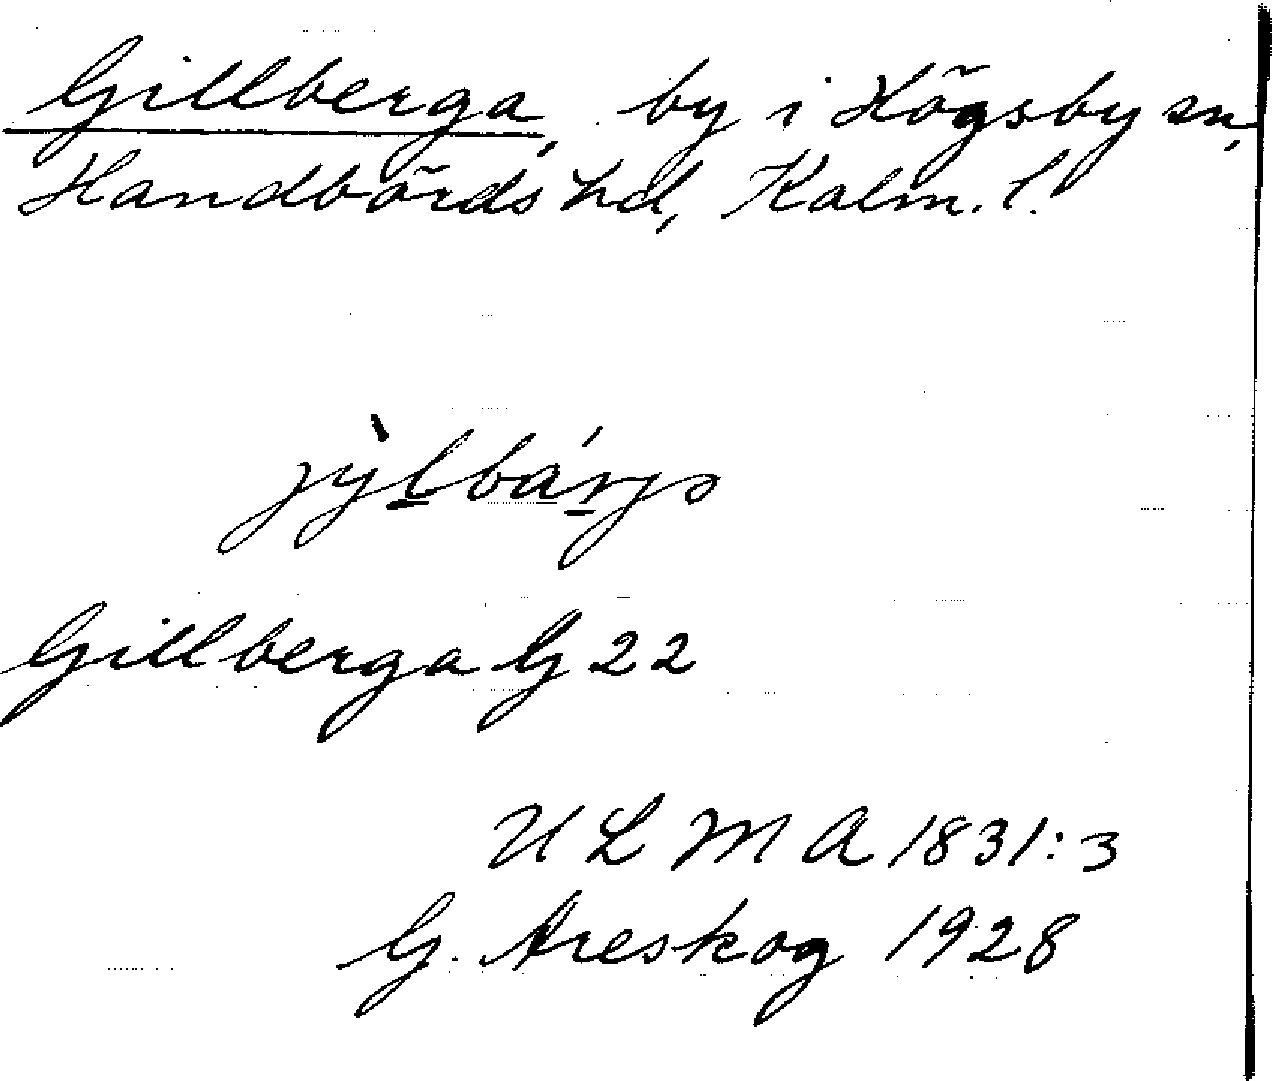 Gillberga, by i Högsby sn,
Handbörds hd, Kalm. l.
jỳlbárjs
Gillberga G 22
ULMA 1831:3
G. Areskog 1928